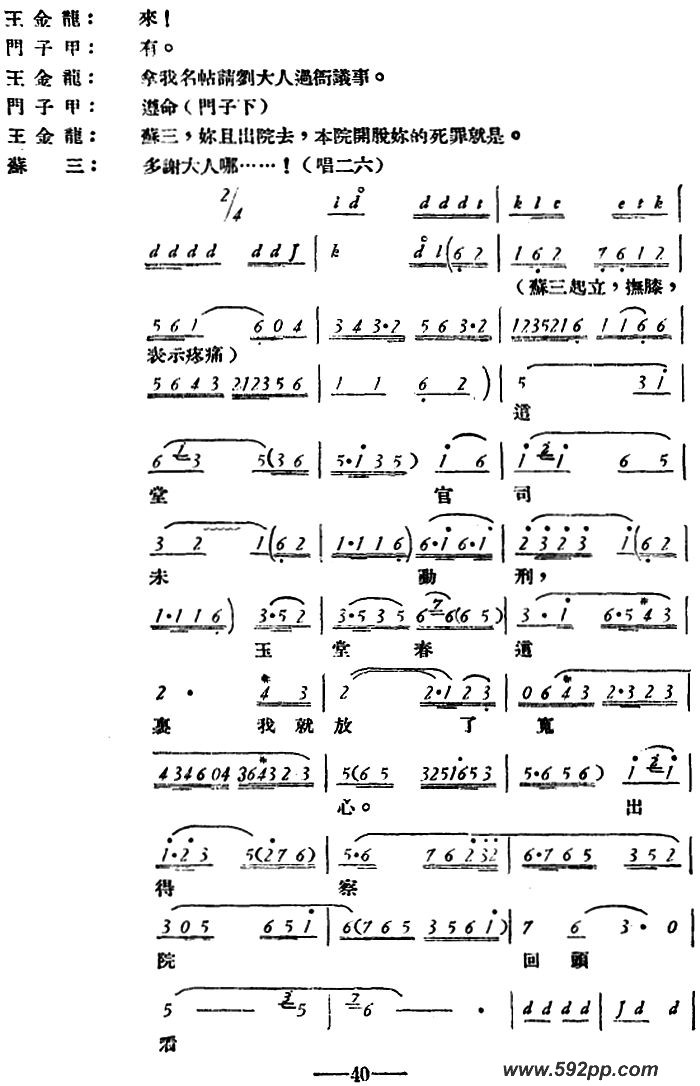 王金龍： 來！
門子甲： 有。
王金龍： 拿我名帖請劉大人過衙議事。
門子甲： 遵命（門子下）
王金龍： 蘇三，妳且出院去，本院開脫妳的死罪就是。
蘇　三： 多謝大人哪……！（唱二六）
2/4 l d d d d t | k l c e t k |
d d d d d d J | k d l (6 2 | 1 6 2 7 6 1 2 |
（蘇三起立，撫膝，
5 6 1 6 0 4 | 3 4 3·2 5 6 3·2 | 1235216 1 1 6 6 |
表示疼痛）
5 6 4 3 212356 | 1 1 6 2 ) | 5 3 i |
這
6 3 5(3 6 | 5·i 3 5) i 6 | i i 6 5 |
堂 官 司
3 2 1(6 2 | 1·1 1 6) 6·i 6·i | 2 3 2 3 i(6 2 |
未 動 刑，
1·1 1 6) 3·5 2 | 3·5 3 5 6 6(6 5) | 3 · i 6·5 4 3 |
玉 堂 春 這
2 · 4 3 | 2 2·1 2 3 | 0 6 4 3 2·3 2 3 |
裏 我 就 放 了 寬
434604 36432·3 | 5(6 5 3251653 | 5·6 5 6) i i |
心。 出
i·2 3 5(2 7 6) | 5·6 7 6 2 3 2 | 6·7 6 5 3 5 2 |
得 察
3 0 5 6 5 i | 6(7 6 5 3 5 6 i) | 7 6 3 · 0 |
院 回 頭
5 — 5 | 6 — · | d d d d | J d d |
看
—40—
www.592pp.com